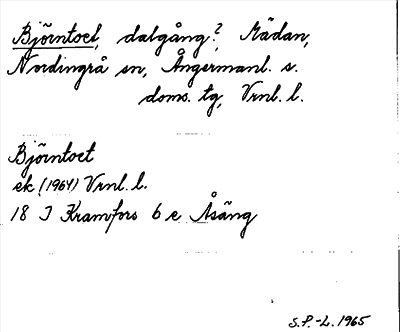 Björntoet, dalgång?, Mädan,
Nordingrå sn, Ångermanl. s.
doms. tg, Vrnl. l.
Björntoet
ek (1964) Vrnl. l.
18 J Kramfors 6 e Åsäng
S.P.-L. 1965